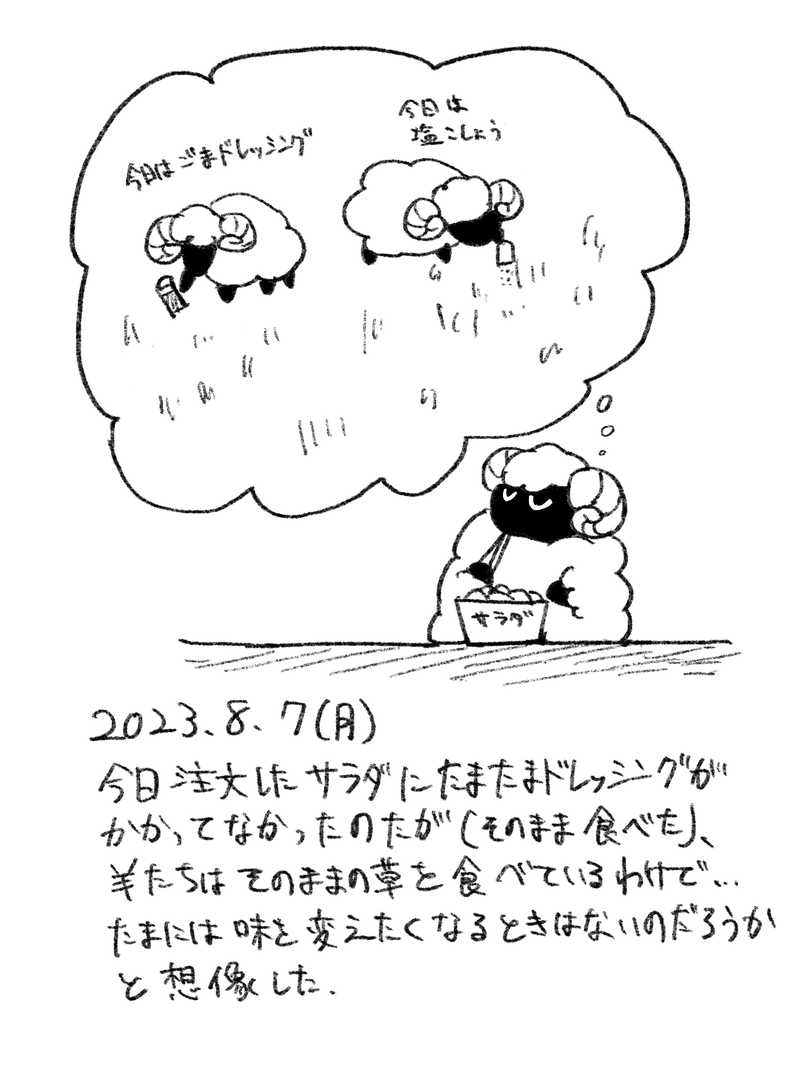 今日はごまドレッシング
今日は
塩こしょう
サラダ
2023.8.7(月)
今日注文したサラダにたまたまドレッシングが
かかってなかったのだが(そのまま食べた)、
羊たちはそのままの草を食べているわけで...
たまには味を変えたくなるときはないのだろうか
と想像した.